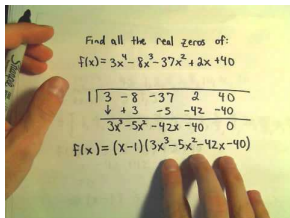 Find all the real zeros of:
f(x) = 3x⁴ - 8x³ - 37x² + 2x + 40
1 | 3 - 8 - 37 2 40
↓ + 3 - 5 - 42 - 40
3x³ - 5x² - 42x - 40 0
f(x) = (x-1)(3x³ - 5x² - 42x - 40)
Sharpie